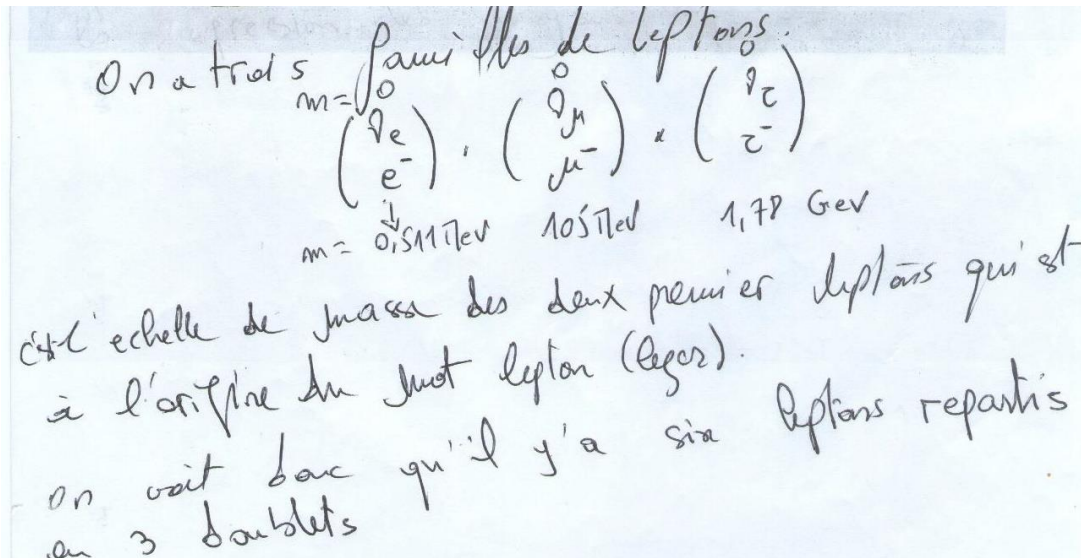 On a trois familles de leptons.
m= 0 0 0
( νe ) , ( νμ ) , ( ντ )
( e⁻ ) ( μ⁻ ) ( τ⁻ )
↓
m= 0,511 MeV 105 MeV 1,78 GeV
c'est l'echelle de masse des deux premier leptons qui est
à l'origine du mot lepton (leger)
on voit donc qu'il y'a six leptons repartis
en 3 doublets